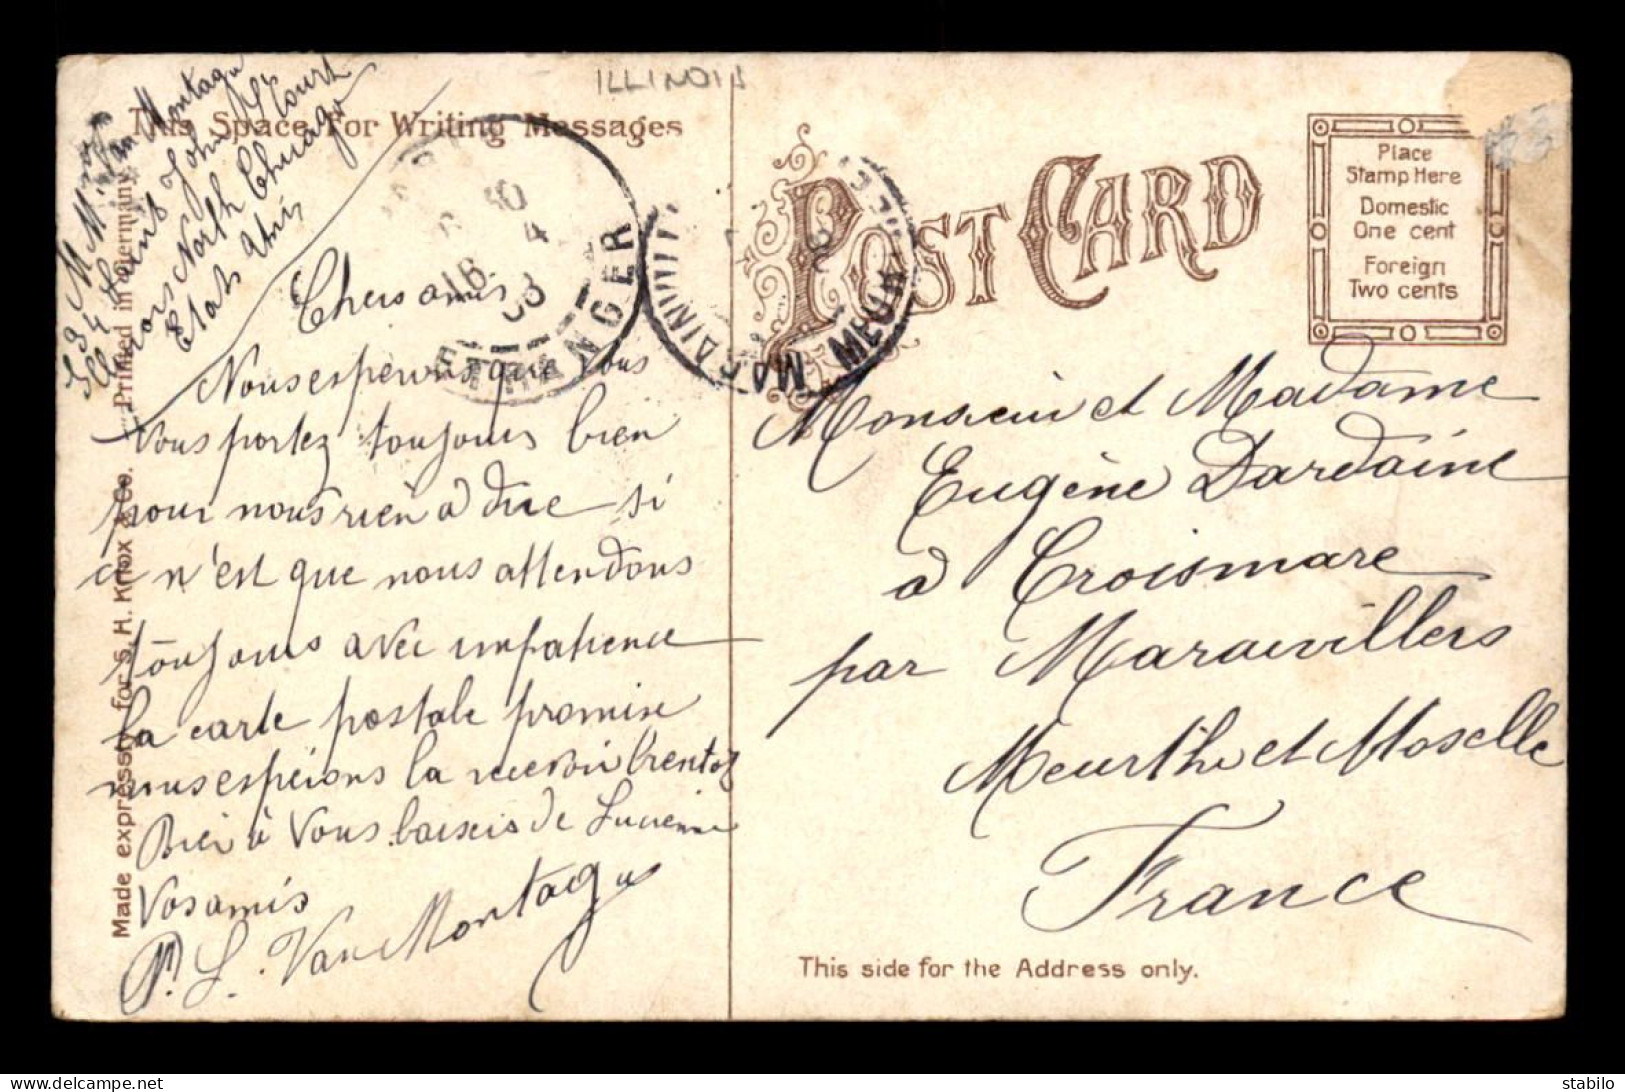 ILLINOIS
This Space For Writing Messages
Van Montagu
Saint John's Court
North Chicago
Etats Unis
Chers amis
Nous esperons que vous
vous portez toujours bien
pour nous rien à dire si
ce n'est que nous attendons
toujours avec impatience
la carte postale promise
nous espérons la recevoir bientot
Bien à Vous baisers de Lucienne
Vos amis
P. L. Van Montagu
Made expressly for S. H. Knox & Co. Printed in Germany.
ETRANGER
16
4
POST CARD
Place
Stamp Here
Domestic
One cent
Foreign
Two cents
Monsieur et Madame
Eugène Dardaine
à Croismare
par Marainvillers
Meurthe et Moselle
France
This side for the Address only.
stabilo